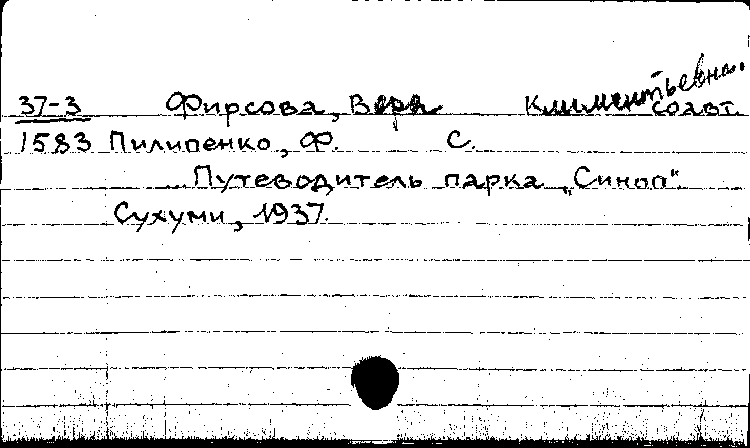 37-3 Фирсова, Вера Климентьевна. соавт.
1583 Пилипенко, Ф. С.
Путеводитель парка „Синоп“.
Сухуми, 1937.